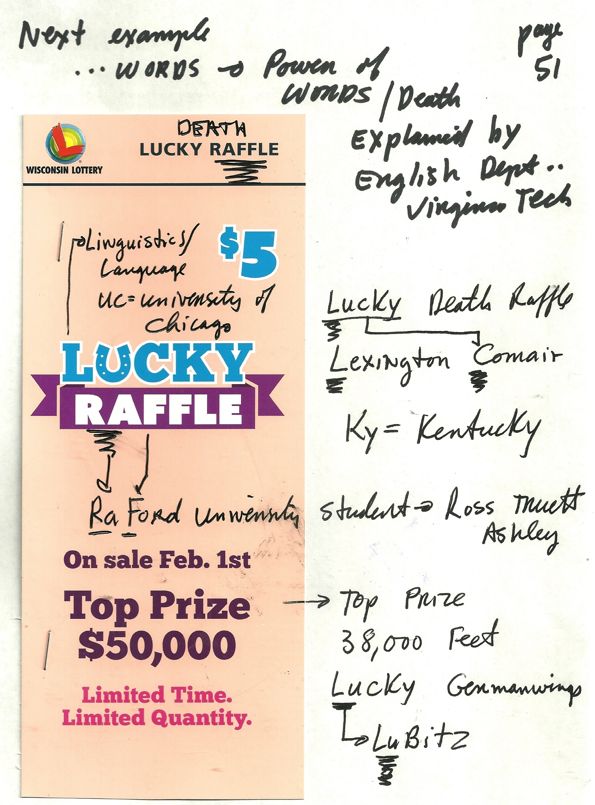 Next example
page
51
... WORDS → Power of
WORDS / Death
Explained by
English Dept..
Virginia Tech
WISCONSIN LOTTERY
DEATH
LUCKY RAFFLE
Linguistics/
Language
UC = University of
Chicago
$5
LUCKY
RAFFLE
Lucky Death Raffle
Lexington Comair
Ky = Kentucky
RaFord University student → Ross Truett
Ashley
On sale Feb. 1st
Top Prize
$50,000
→ Top Prize
38,000 Feet
Limited Time.
Limited Quantity.
Lucky Germanwings
LuBitz